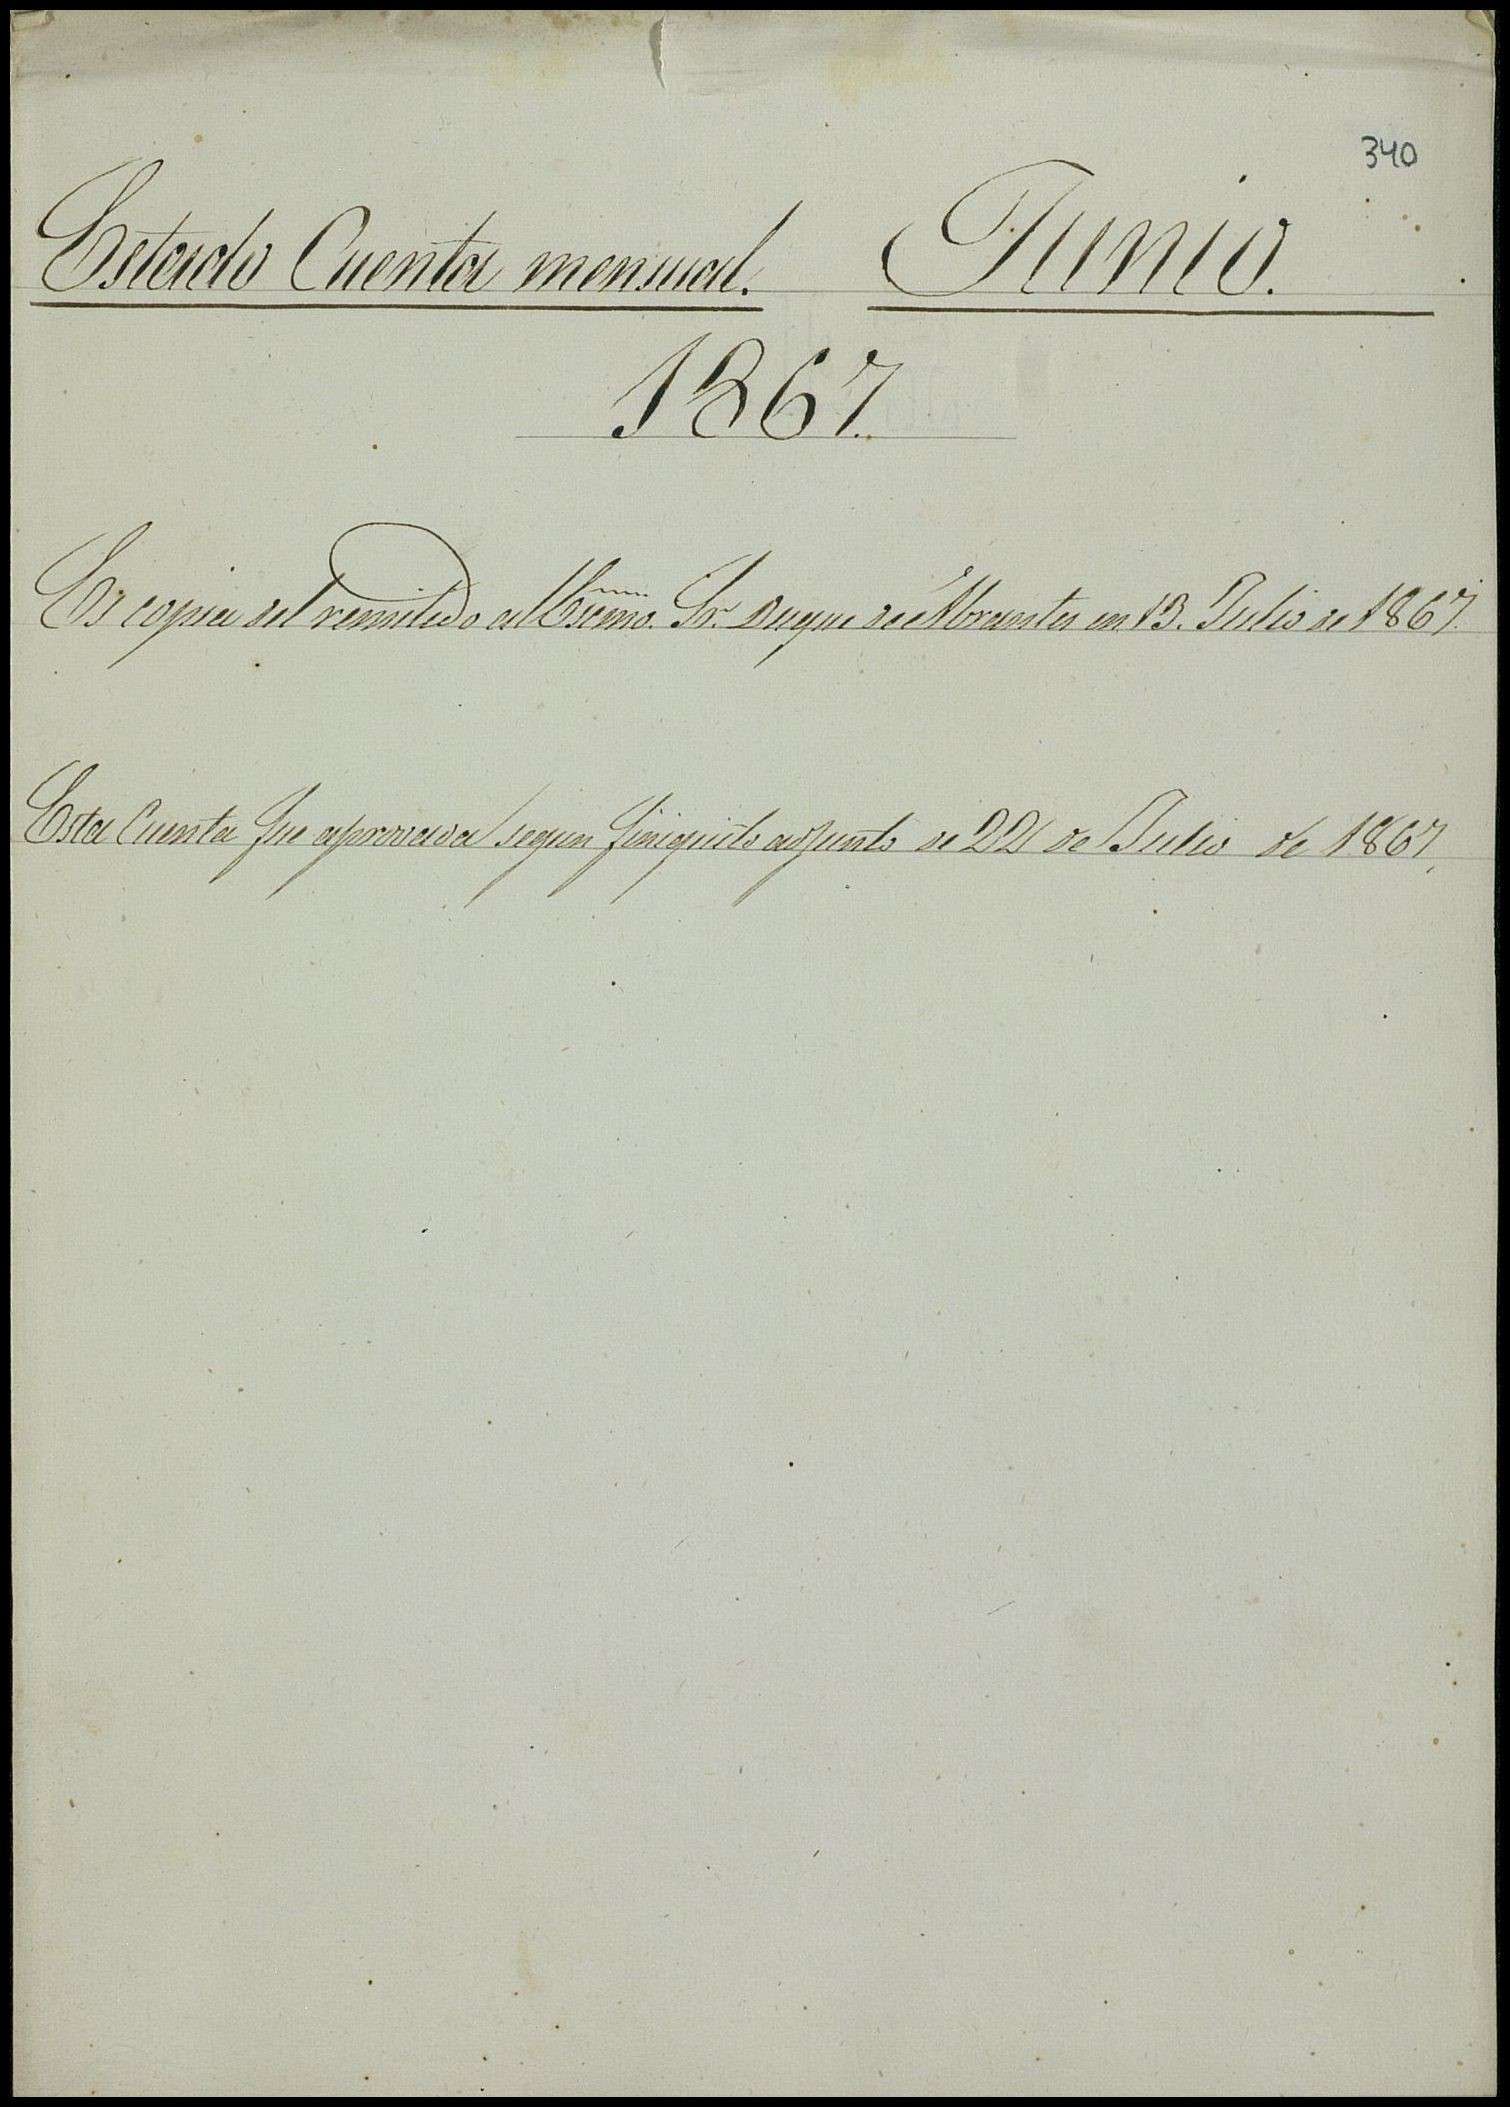 340
Estado Cuenta mensual. Junio.
1867.
Es copia del remitido al Escmo. Sr. Duque de Abrantes en 13. Julio de 1867.
Esta Cuenta fue aprovada segun finiquito adjunto de 22 de Julio de 1867.